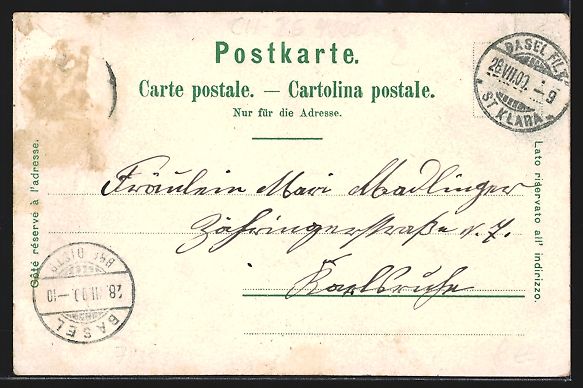 Postkarte.
Carte postale. — Cartolina postale.
Nur für die Adresse.
Côté réservé à l'adresse.
Lato riservato all' indirizzo.
BASEL FIL.
28.VII.00. – 9
ST KLARA
Fräulein Mari Madlinger
Zähringerstraße n. 7.
Karlsruhe
BRF. DISTR.
28.VII.00.–10
BASEL